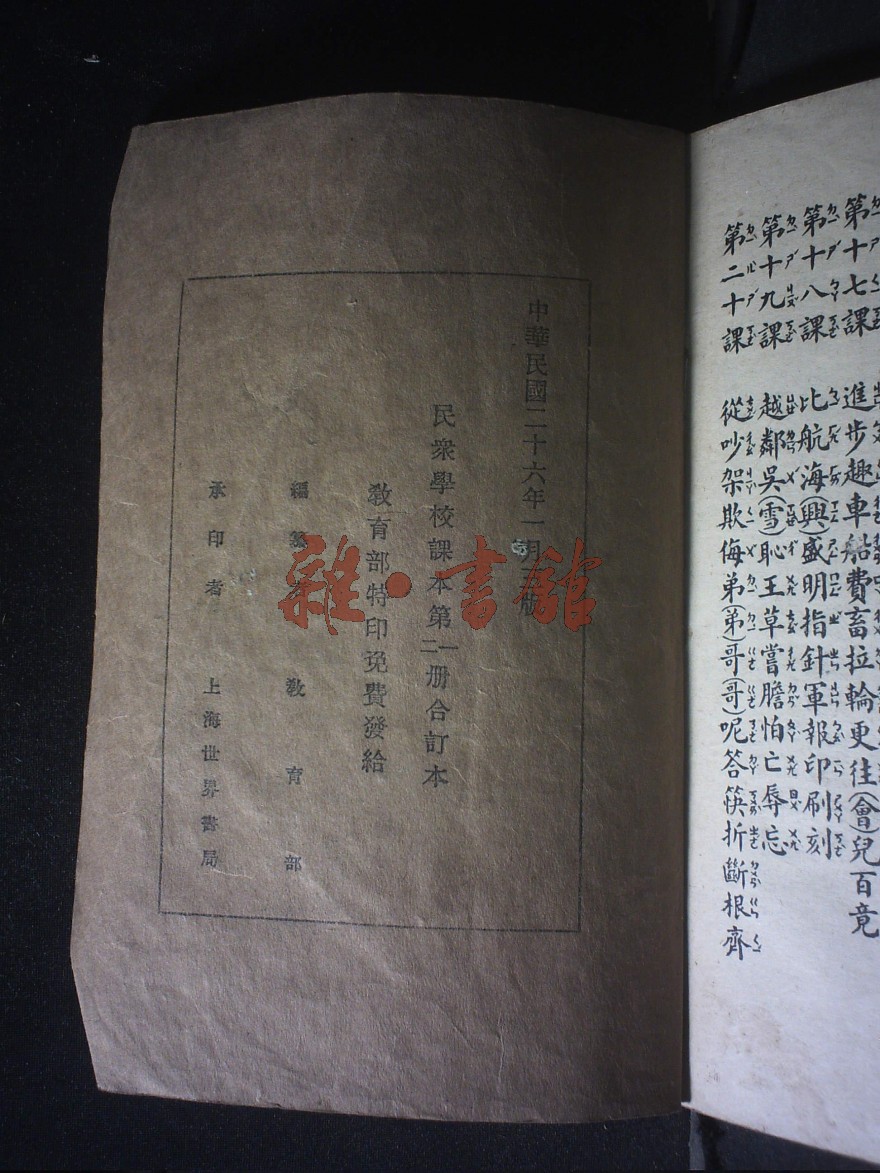 中華民國二十六年一月 版
民衆學校課本第一二册合訂本
教育部特印免費發給
編纂者 教育部
承印者 上海世界書局
雜·書館
第十七課 進步趣車船費畜拉輪更往(會)兒百竟
第十八課 比航海(興)盛明指針軍報印刷刻
第十九課 越鄰吳(雪)恥王草嘗膽怕亡辱忘
第二十課 從吵架欺侮弟(弟)哥(哥)呢答筷折斷根齊